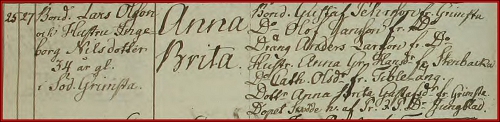 25 27 Bond. Lars Olson
och Hustru Inge
borg Nilsdotter
34 år gl.
i Söd. Grimsta.
Anna
Brita.
Bond. Gustaf Jehrson fr. Grimsta
Dº Olof Larsson fr. Dº
Dräng Anders Larson fr. Dº
Hustr. Anna Greta fr. Stenbacken
Cath. Olsdr. fr. Tibble äng.
Dottr. Anna Brita Gustafsdr. fr. Grimsta.
Dopet af Ljungblad.